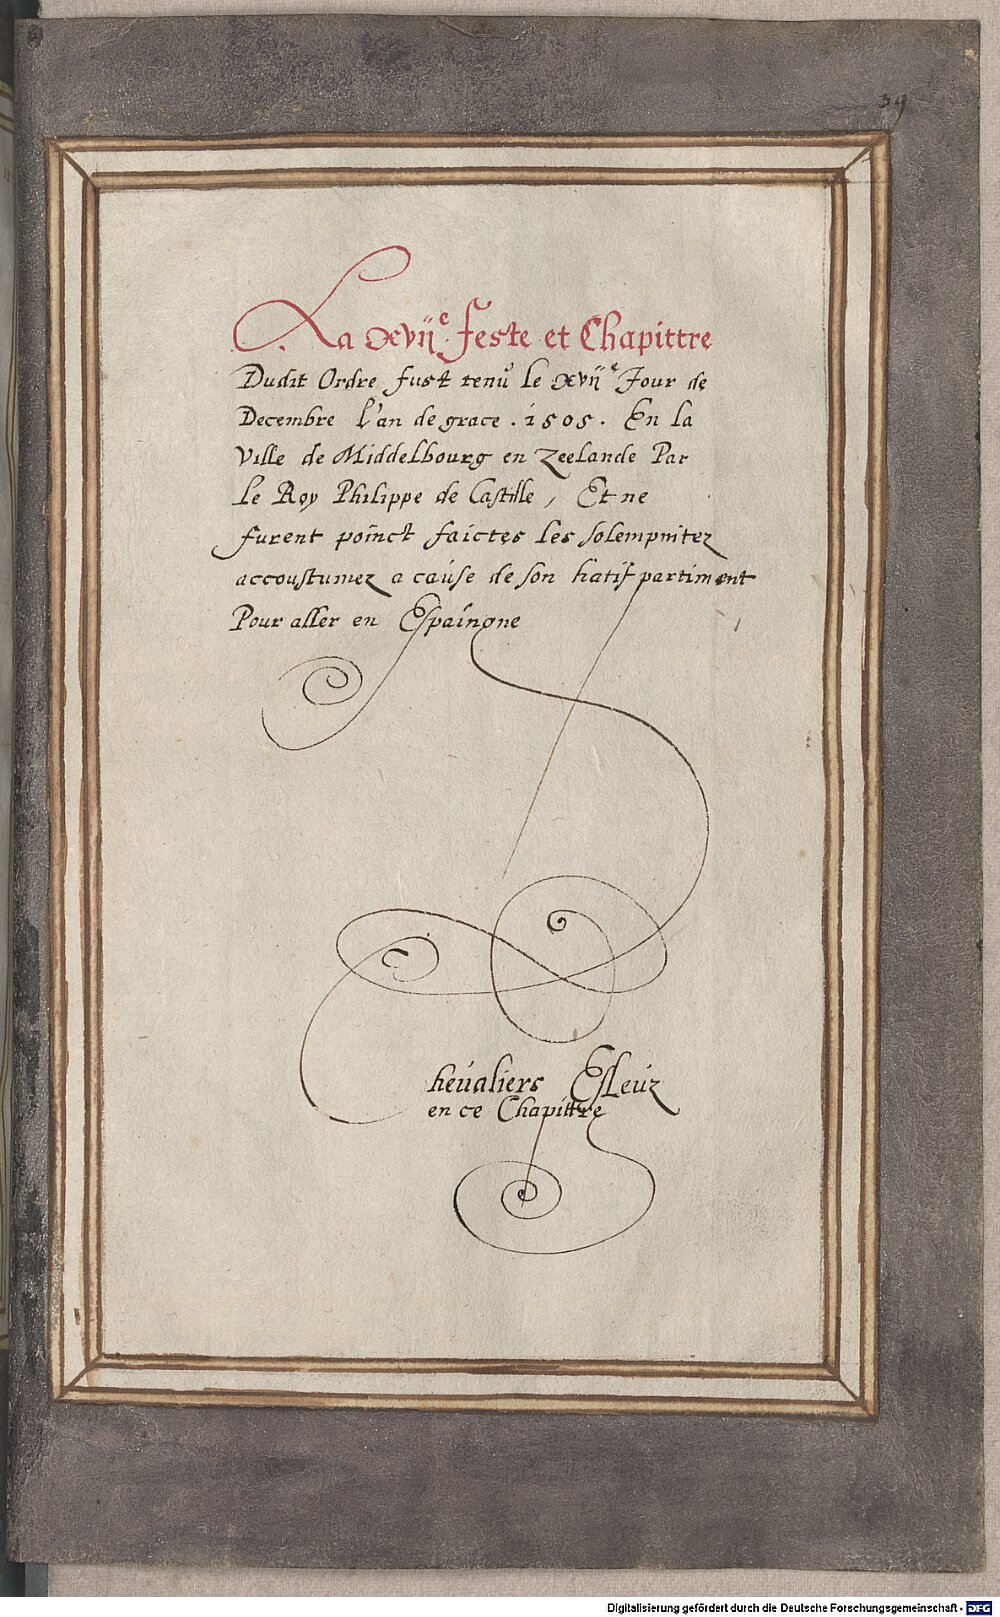 39
La xvij<sup>e</sup>. feste et Chapittre
Dudit Ordre fust tenu le xvij<sup>e</sup> Jour de
Decembre l'an de grace . 1505 . En la
Ville de Middelbourg en Zeelande Par
le Roy Philippe de Castille , Et ne
furent poinct faictes les solempnitez
accoustumez a cause de son hatif partiment
Pour aller en Espaingne
hevaliers Esleuz
en ce Chapittre
Digitalisierung gefördert durch die Deutsche Forschungsgemeinschaft - DFG